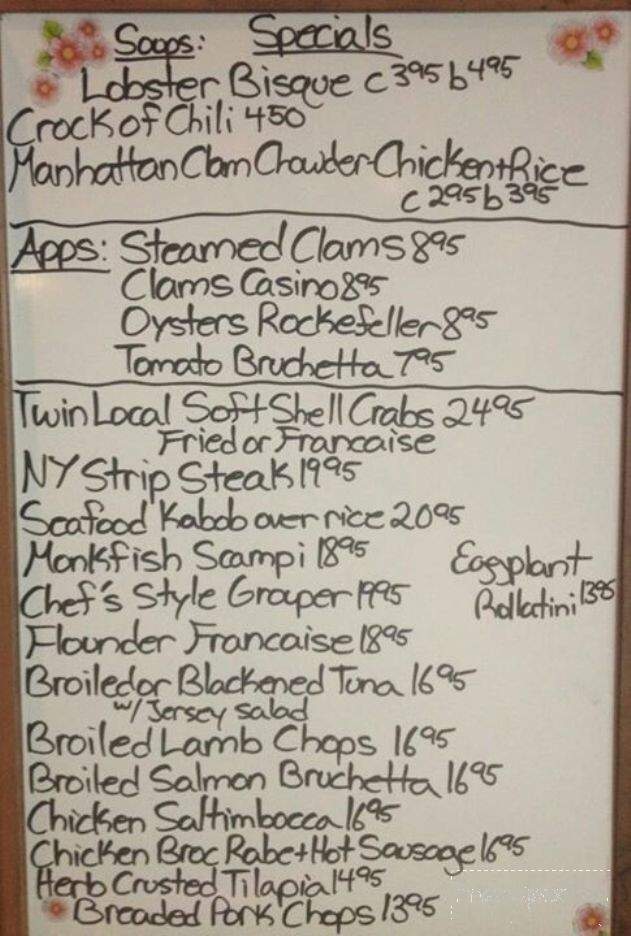 Soops: Specials
Lobster Bisque c 395 b 495
Crock of Chili 450
Manhattan Clam Chowder-Chicken+Rice
c 295 b 395
Apps: Steamed Clams 895
Clams Casino 895
Oysters Rockefeller 895
Tomato Bruchetta 795
Twin Local Soft Shell Crabs 2495
Fried or Francaise
NY Strip Steak 1995
Seafood Kabob over rice 2095
Monkfish Scampi 1895
Eggplant
Chef's Style Grouper 1995
Rollatini 1395
Flounder Francaise 1895
Broiled or Blackened Tuna 1695
w/ Jersey salad
Broiled Lamb Chops 1695
Broiled Salmon Bruchetta 1695
Chicken Saltimbocca 1695
Chicken Broc Rabe + Hot Sausage 1695
Herb Crusted Tilapia 1495
Breaded Pork Chops 1395